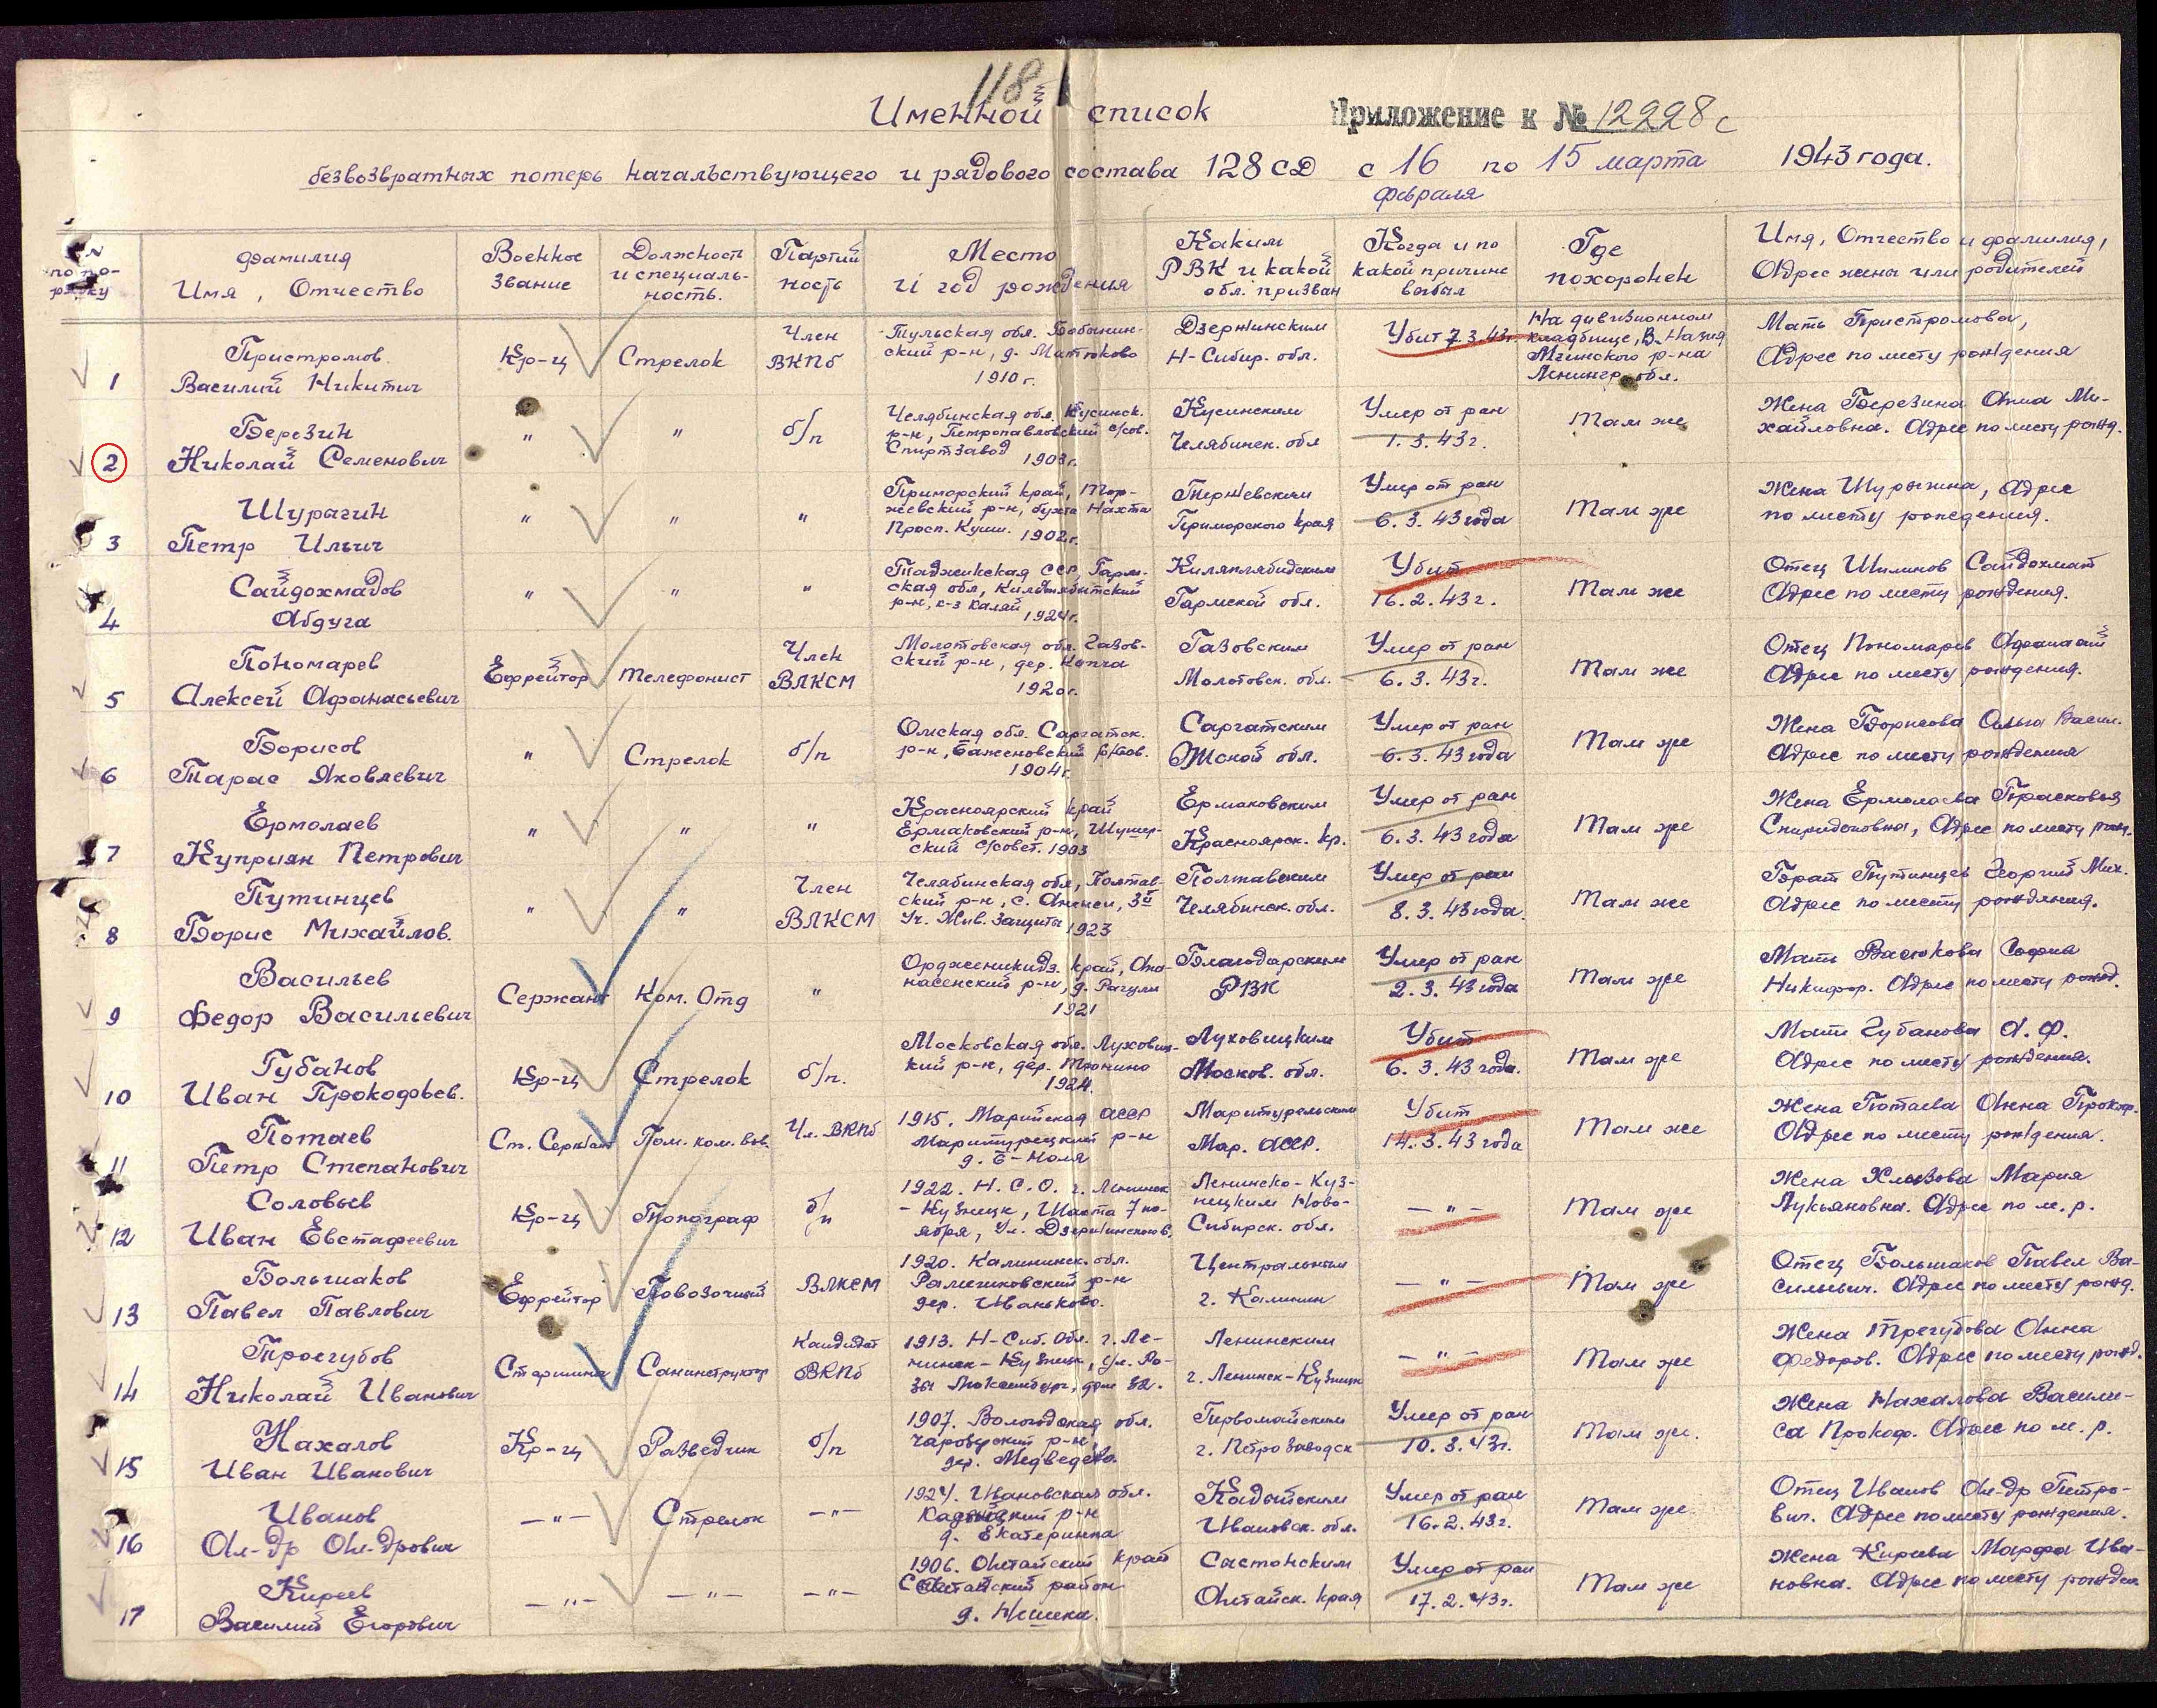 118
Именной список
Приложение к № 12228с
безвозвратных потерь начальствующего и рядового состава 128 СД с 16 по 15 марта 1943 года.
февраля
№ по по-рядку
Фамилия
Имя, Отчество
Военное
звание
Должность
и специаль-
ность.
Партий
ность
Место
и год рождения
Каким
РВК и какой
обл. призван
Когда и по
какой причине
выбыл
Где
похоронен
Имя, Отчество и фамилия,
Адрес жены или родителей
1
Пристромов
Василий Никитич
Кр-ц
Стрелок
Член
ВКПб
Тульская обл. Бабынин-
ский р-н, д. Матюково
1910 г.
Дзержинским
Н-Сибир. обл.
Убит 7.3.43г
На дивизионном
кладбище, В. Назия
Мгинского р-на
Ленингр. обл.
Мать Пристромова,
Адрес по месту рождения
2
Березин
Николай Семенович
"
"
б/п
Челябинская обл. Кусинск.
р-н, Петропавловский с/сов.
Спиртзавод 1903г.
Кусинским
Челябинск. обл
Умер от ран
1.3.43г.
Там же
Жена Березина Анна Ми-
хайловна. Адрес по месту рожд.
3
Шурагин
Петр Ильич
"
"
"
Приморский край, Тер-
жевский р-н, бухта Нахта
1902г.
Тержевским
Приморского края
Умер от ран
6.3.43 года
Там же
Жена Шурыгина, Адрес
по месту рождения.
4
Сайдохмадов
Абдуга
"
"
"
Таджикская ССР Гарм-
ская обл,
р-н, к-з Каляй 1924г.
Гармской обл.
Убит
16.2.43г.
Там же
Отец Шилинов Сайдохмат
Адрес по месту рождения.
5
Пономарев
Алексей Афанасьевич
Ефрейтор
Телефонист
Член
ВЛКСМ
Молотовская обл. Газов-
ский р-н, дер. Капча
1920г.
Газовским
Молотовск. обл.
Умер от ран
6.3.43г.
Там же
Отец Пономарев Афанасий
Адрес по месту рождения.
6
Борисов
Тарас Яковлевич
"
Стрелок
б/п
Омская обл. Саргатск.
р-н, Баженовский с/сов.
1904г.
Саргатским
Омской обл.
Умер от ран
6.3.43 года
Там же
Жена Борисова Ольга Васил.
Адрес по месту рождения
7
Ермолаев
Куприян Петрович
"
"
"
Красноярский край
Ермаковский р-н, Шушер-
ский с/совет. 1903
Ермаковским
Красноярск. кр.
Умер от ран
6.3.43 года
Там же
Жена Ермолаева Прасковья
Спиридоновна, Адрес по месту рож.
8
Путинцев
Борис Михайлов.
"
"
Член
ВЛКСМ
Челябинская обл, Полтав-
ский р-н, с. Аннен, 3й
Уч. Жив. Защита 1923
Полтавским
Челябинск. обл.
Умер от ран
8.3.43 года.
Там же
Брат Путинцев Георгий Мих.
Адрес по месту рождения.
9
Васильев
Федор Васильевич
Сержант
Ком. Отд
"
Орджоникидз. край, Апа-
насенский р-н, д. Рагули
1921
Благодарским
РВК
Умер от ран
2.3.43 года
Там же
Мать Васюкова София
Никифор. Адрес по месту рожд.
10
Губанов
Иван Прокофьев.
Кр-ц
Стрелок
б/п.
Московская обл. Луховиц-
кий р-н, дер. Тюнино
1924.
Луховицким
Москов. обл.
Убит
6.3.43 года.
Там же
Мать Губанова А. Ф.
Адрес по месту рождения.
11
Потаев
Петр Степанович
Ст. Сержант
Пом. ком. взв.
Чл. ВКПб
1915. Марийская АССР
Маритурецкий р-н
д. Б-Ноля
Маритурельским
Мар. АССР.
Убит
14.3.43 года
Там же
Жена Потаева Анна Прокоф.
Адрес по месту рождения.
12
Соловьев
Иван Евстафеевич
Кр-ц
Топограф
б/п
1922. Н.С.О. г. Ленинск
-Кузнецк, Шахта 7 но-
ября, Ул. Дзержинского 6.
Ленинско-Куз-
нецким Ново-
Сибирск. обл.
-"-
Там же
Жена Хлызова Мария
Лукьяновна. Адрес по м. р.
13
Большаков
Павел Павлович
Ефрейтор
Повозочный
ВЛКСМ
1920. Калининск. обл.
Рамешковский р-н
дер. Иваньково.
Центральным
г. Калинин
-"-
Там же
Отец Большаков Павел Ва-
сильевич. Адрес по месту рожд.
14
Трегубов
Николай Иванович
Старшина
Санинструктор
Кандидат
ВКПб
1913. Н-Сиб. Обл. г. Ле-
нинск-Кузнецк, ул. Ро-
за Люксембург, дом 32.
Ленинским
г. Ленинск-Кузнецк
-"-
Там же
Жена Трегубова Анна
Федоров. Адрес по месту рожд.
15
Нахалов
Иван Иванович
Кр-ц
Разведчик
б/п
1907. Вологодская обл.
Чарозерский р-н,
дер. Медведево.
Первомайским
г. Петрозаводск
Умер от ран
10.3.43г.
Там же.
Жена Нахалова Васили-
са Прокоф. Адрес по м. р.
16
Иванов
Ал-др Ал-дрович
-"-
Стрелок
-"-
1924. Ивановская обл.
Кадыйский р-н
д. Екатеринка
Кадыйским
Ивановск. обл.
Умер от ран
16.2.43г.
Там же
Отец Иванов Ал-др Петро-
вич. Адрес по месту рождения.
17
Киреев
Василий Егорович
-"-
-"-
-"-
1906. Алтайский край
район
Алтайск. края
Умер от ран
17.2.43г.
Там же
Жена Киреева Марфа Ива-
новна. Адрес по месту рожден.